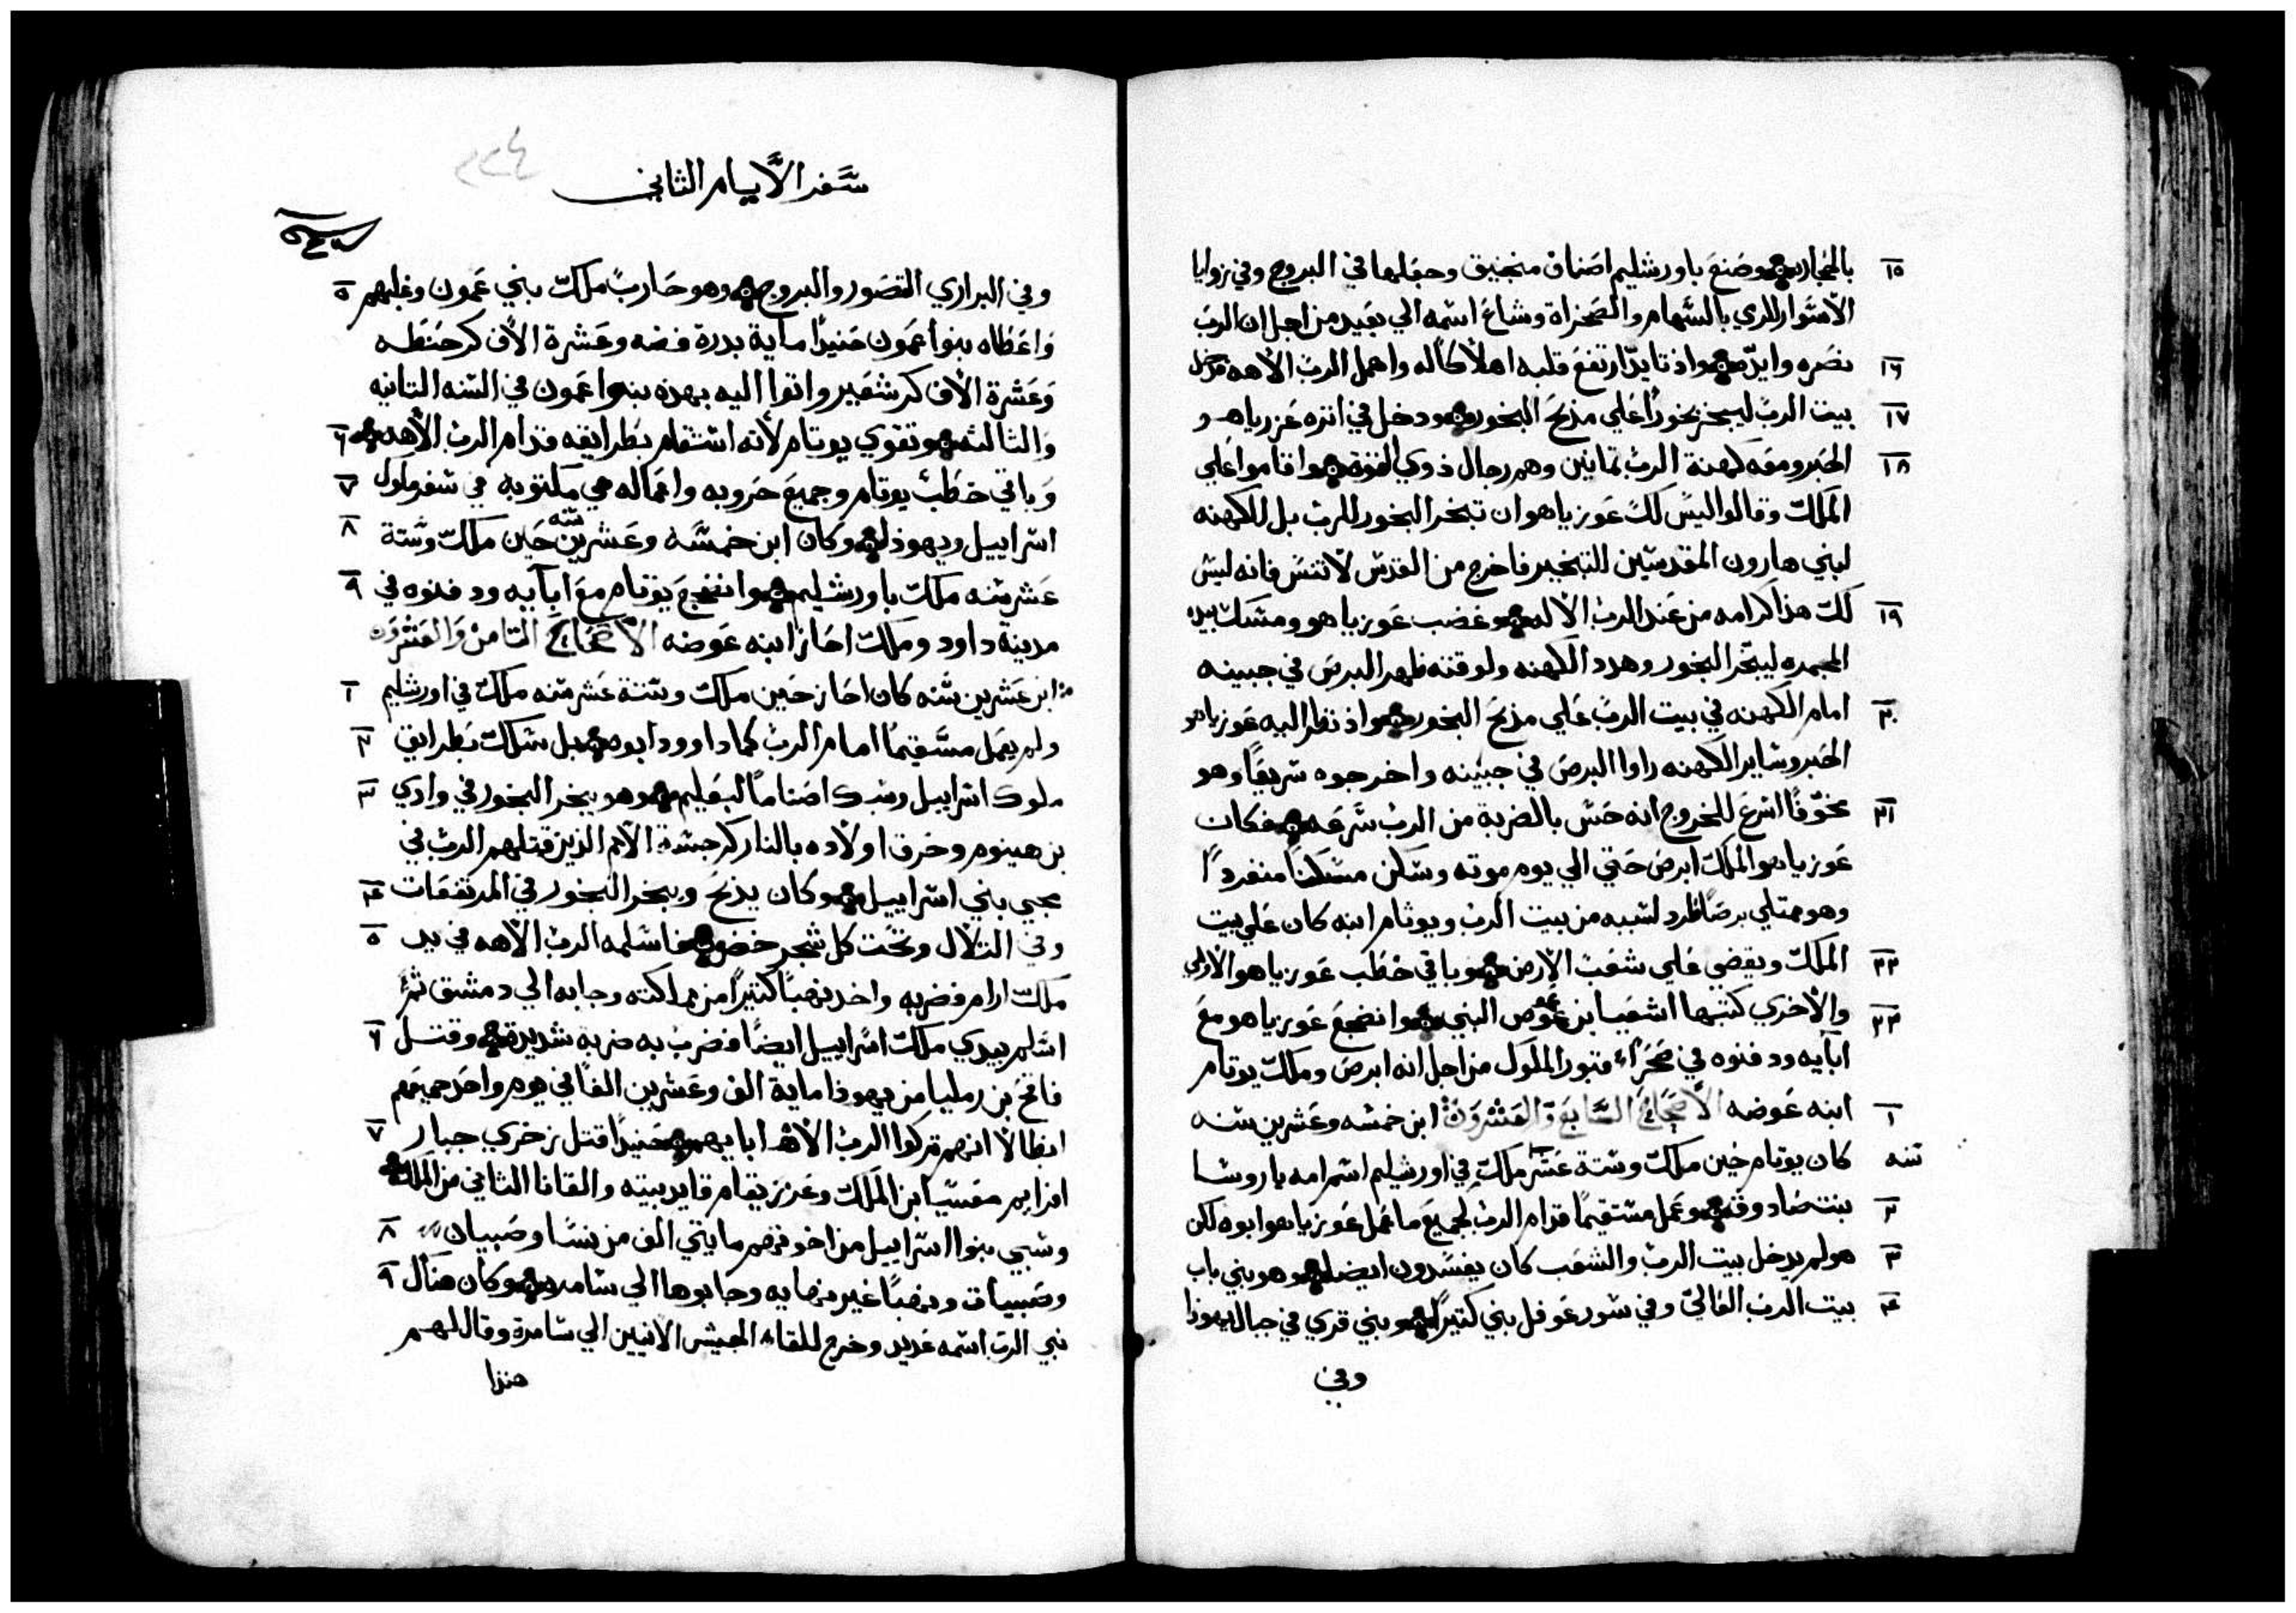 ١٥ بالحجاره وصنع باورشليم اصناف منجنيق وجعلها في البروج وفي زوايا
الاسوار للرمي بالسهام والصخراة وشاع اسمه الي بعيد من اجل ان الرب
١٦ نصره وايده واذ تايد ارتفع قلبه اهلاكا له واهمل الرب الاهه فدخل
١٧ بيت الرب ليبخر بخورا علي مذبح البخور ودخل في اثره عزرياهو
١٨ الحبر ومعه كهنة الرب ثمانين وهم رجال ذوي القوه واقاموا علي
الملك وقالوا اليس لك عوزياهو ان تبخر البخور للرب بل للكهنه
لبني هارون المقدسين للتبخير فاخرج من القدس لانتس فانه ليس
١٩ لك هذا كرامه من عند الرب الاله وغضب عوزياهو ومسك بيده
المجمره ليبخر البخور وهدد الكهنه ولوقته ظهر البرص في جبينه
٢٠ امام الكهنه في بيت الرب علي مذبح البخور واذ نظر اليه عوزياهو
الحبر وساير الكهنه راوا البرص في جبينه واخرجوه سريعا وهو
٢١ مخوفا اسرع للخروج انه حس بالضربة من الرب سرعه فكان
عوزياهو الملك ابرص حتي الي يوم موته وسكن مسكنا منفردا
وهو ممتلي برصا طرد لسببه من بيت الرب ويوثام ابنه كان علي بيت
٢٢ الملك ويقضي علي شعب الارض وباقي خطب عوزياهو الاولي
٢٣ والاخري كتبها اشعيا بن عموص النبي وانضجع عوزياهو مع
ابآيه ودفنوه في صحراء قبور الملوك من اجل انه ابرص وملك يوتام
١ ابنه عوضه الاصحاح السابع والعشرون ابن خمسه وعشرين سنه
كان يوتام حين ملك وستة عشر سنه ملك في اورشليم اسم امه ياروشا
٢ بنت صادوق وعمل مستقيما قدام الرب لجميع ما عمل عوزياهو ابوه لكن
٣ هو لم يدخل بيت الرب والشعب كان يفسدون ايضا وهو بني باب
٤ بيت الرب العالي وفي سور عوفل بني كثيرا وبني قري في جبال يهوذا
وفي
سفر الايام الثاني
٢٢٤
٥ وفي البراري القصور والبروج وهو حارب ملك بني عمون وغلبهم
واعطاه بنوا عمون حنيذا ماية بدرة فضه وعشرة الاف كر حنطه
وعشرة الاف كر شعير واتوا اليه بهذه بنوا عمون في السنه الثانيه
٦ والثالثه وتقوي يوتام لانه استقام بطرايقه قدام الرب الاهه
٧ وباقي خطب يوتام وجميع حروبه واعماله هي مكتوبه في سفر ملوك
٨ اسراييل ويهوذا وكان ابن خمسه وعشرين سنه حين ملك وستة
٩ عشر سنه ملك باورشليم وانضجع يوتام مع ابآيه ودفنوه في
مدينة داود وملك احاز ابنه عوضه الاصحاح الثامن والعشرون
١ ابن عشرين سنه كان احاز حين ملك وستة عشر سنه ملك في اورشليم
٢ ولم يعمل مستقيما امام الرب كما داوود ابوه بل سلك بطرايق
٣ ملوك اسراييل وسبك اصناما لبعليم وهو بخر البخور في وادي
بن هينوم وحرق اولاده بالنار كرجسة الامم الذين قتلهم الرب في
٤ مجي بني اسراييل وكان يذبح ويبخر البخور في المرتفعات
٥ وفي التلال وتحت كل شجر خضر فاسلمه الرب الاهه في يد
ملك ارام فضربه واخذ نهبا كثيرا من مملكته وجابه الي دمشق ثم
٦ اسلم بيدي ملك اسراييل ايضا فضرب به ضربه شديدة وقتل
فاقح بن رمليا من يهوذا ماية الف وعشرين الفا في يوم واحد جميعهم
٧ ابطالا انهم تركوا الرب الاه ابايهم حنيذا قتل زخري جبار
افرايم معسيا بن الملك وعزريقام قايد بيته والقانا الثاني من الملك
٨ وسبي بنوا اسراييل من اخوتهم مايتي الف من نسا وصبيان
٩ وصبيات ونهبا غير نهايه وجابوها الي سامره وكان هناك
نبي الرب اسمه عديد وخرج للقاء الجيش الاتيين الي سامرة وقال لهم
هنذا